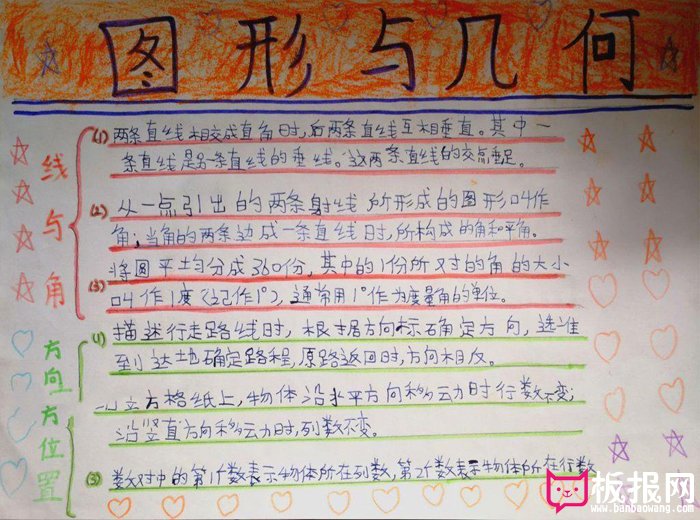 图形与几何
线与角
(1) 两条直线相交成直角时,这两条直线互相垂直。其中一
条直线是另一条直线的垂线。这两条直线的交点垂足。
(2) 从一点引出的两条射线所形成的图形叫作
角;当角的两条边成一条直线时,所构成的角和平角。
(3) 将圆平均分成360份,其中的1份所对的角的大小
叫作1度(记作1°),通常用1°作为度量角的单位。
方向
(1) 描述行走路线时,根据方向标确定方向,选准
到达地确定路程,原路返回时,方向相反。
方位置
方格纸上,物体沿水平方向移动时行数不变;
沿竖直方向移动时,列数不变。
(3) 数对中的第1个数表示物体所在列数,第2个数表示物体所在行数
板报网
www.banbaowang.com